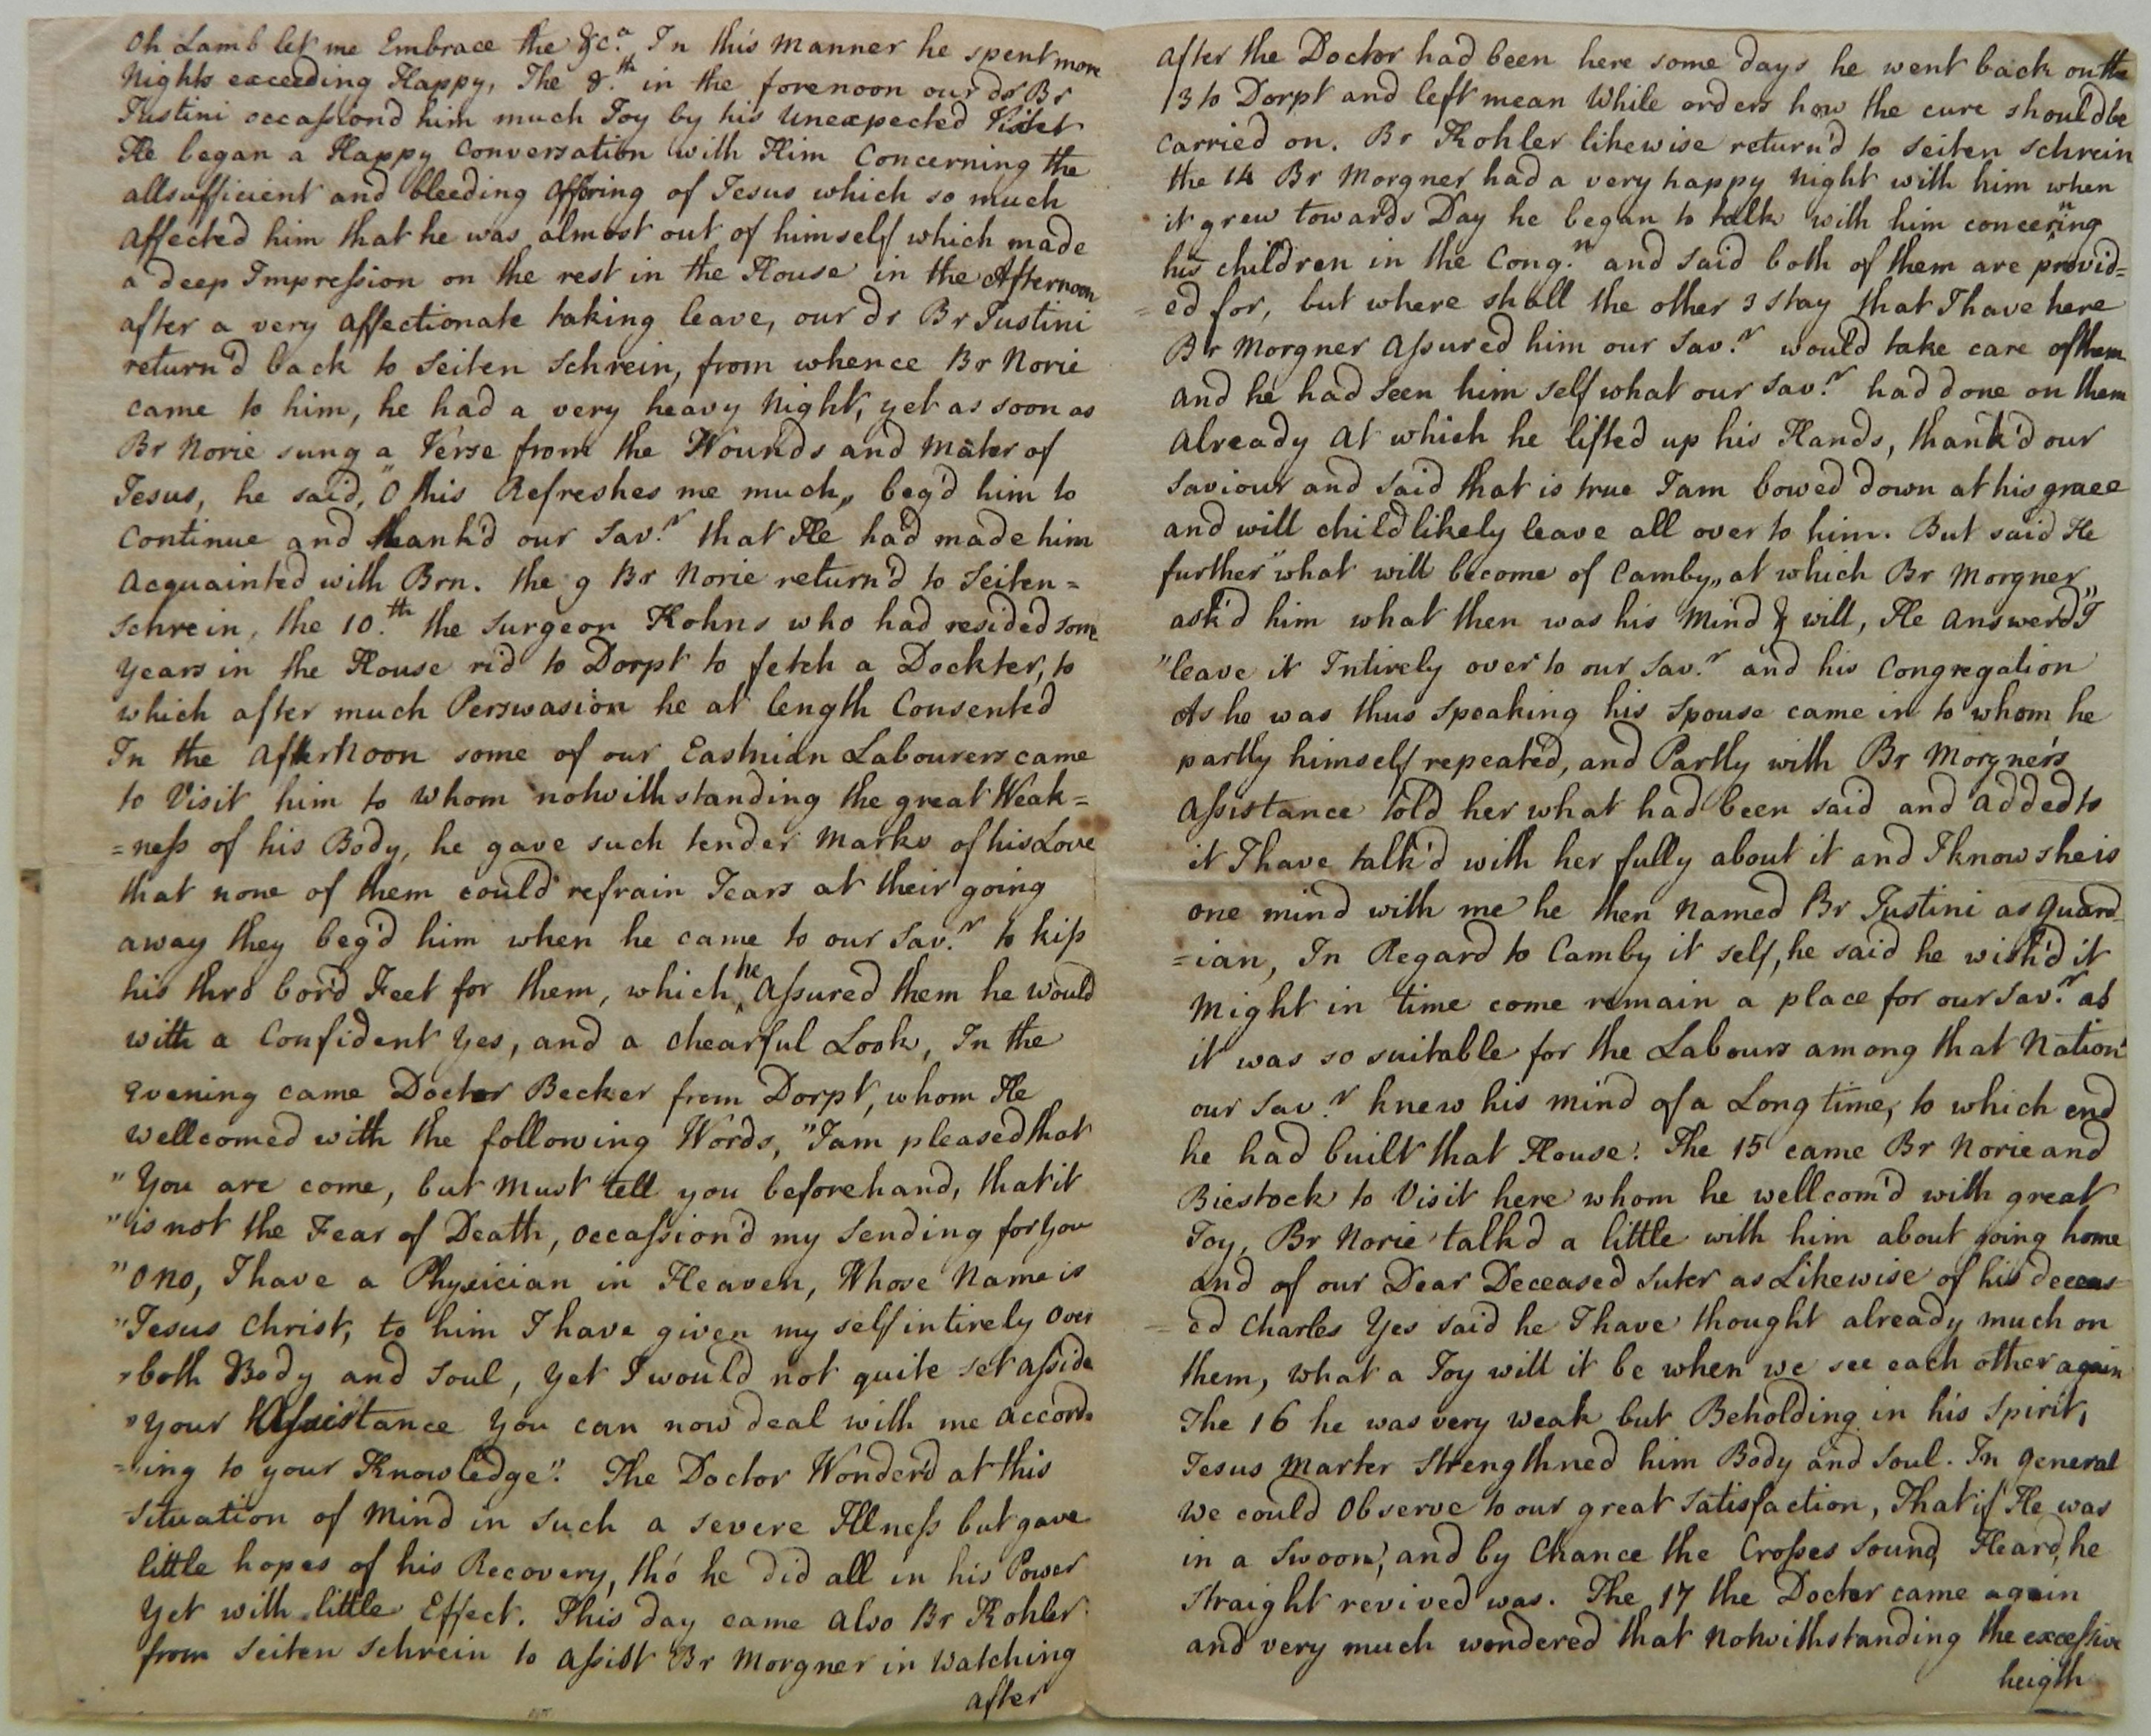 Oh Lamb let me Embrace the &c.a In this Manner he spent more
Nights exceeding Happy, The 8.th in the forenoon our dr Br
Justini occassiond him much Joy by his Unexpected Visit
He began a Happy Conversation with Him Concerning the
allsufficient and bleeding Offring of Jesus which so much
affected him that he was almost out of himself which made
a deep Impression on the rest in the House in the Afternoon
after a very affectionate taking leave, our dr Br Justini
return'd back to Seiten Schrein, from whence Br Norie
came to him, he had a very heavy Night, yet as soon as
Br Norie sung a Verse from the Wounds and Mater of
Jesus, he said, "O this Refreshes me much„ beg'd him to
Continue and thank'd our Sav.r that He had made him
Acquainted with Brn. the 9 Br Norie return'd to Seiten=
Schrein, the 10.th the Surgeon Kohns who had resided som
Years in the House rid to Dorpt to fetch a Dockter, to
which after much Perswasion he at length Consented
In the AfterNoon some of our Eastnian Labourers came
to Visit him to whom notwithstanding the great Weak=
=ness of his Body, he gave such tender Marks of his Love
that none of them could refrain Tears at their going
away they beg'd him when he came to our Sav.r to kiss
his thro bor'd Feet for them, which he Assured them he would
with a Confident Yes, and a chearful Look, In the
Evening came Doctor Becker from Dorpt, whom He
wellcomed with the following Words, "I am pleased that
"You are come, but Must tell you beforehand, that it
"is not the Fear of Death, occassion'd my Sending for You
"O no, I have a Physician in Heaven, Whose Name is
"Jesus Christ, to him I have given my self intirely over
"both Body and Soul, Yet I would not quite set asside
"Your Assistance You can now deal with me accord=
=ing to your Knowledge". The Doctor Wonder'd at this
Situation of Mind in Such a severe Illness but gave
little hopes of his Recovery, tho' he did all in his Power
Yet with little Effect. This day came also Br Kohler
from Seiten Schrein to Assist Br Morgner in Watching
after
After the Doctor had been here some days he went back on the
13 to Dorpt and left mean While orders how the cure should be
Carried on. Br Kohler likewise return'd to Seiten Schrein
the 14 Br Morgner had a very happy Night with him when
it grew towards Day he began to talk with him concerning
his children in the Cong.n and said both of them are provid=
=ed for, but where shall the other 3 stay that I have here
Br Morgner Assured him our Sav.r would take care of them
and he had seen him self what our Sav.r had done on them
Already At which he lifted up his Hands, thank'd our
Saviour and said that is true I am bowed down at his grace
and will childlikely leave all over to him. But said He
further "what will become of Camby„ at which Br Morgner
ask'd him what then was his Mind & will, He Answer'd "I
"leave it Intirely over to our Sav.r and his Congregation"
As he was thus Speaking his Spouse came in to whom he
partly himself repeated, and Partly with Br Morgner's
Assistance told her what had been said and added to
it I have talk'd with her fully about it and I know she is
one mind with me he then Named Br Justini as guard
=ian, In Regard to Camby it self, he said he wish'd it
Might in time come remain a place for our Sav.r as
it was so suitable for the Labours among that Nation
our Sav.r knew his mind of a Long time, to which end
he had built that House. The 15 came Br Norie and
Biestock to Visit here whom he wellcom'd with great
Joy, Br Norie talk'd a little with him about going home
and of our Dear Deceased Suter as Likewise of his deceas=
=ed Charles Yes said he I have thought already much on
them, what a Joy will it be when we see each other again
The 16 he was very weak but Beholding in his Spirit,
Jesus Marter Strengthned him Body and Soul. In general
we could Observe to our great Satisfaction, That if He was
in a Swoon, and by Chance the Crosses Sound Heard, he
Straight revived was. The 17 the Docter came again
and very much wondered that Notwithstanding the excessive
heigth